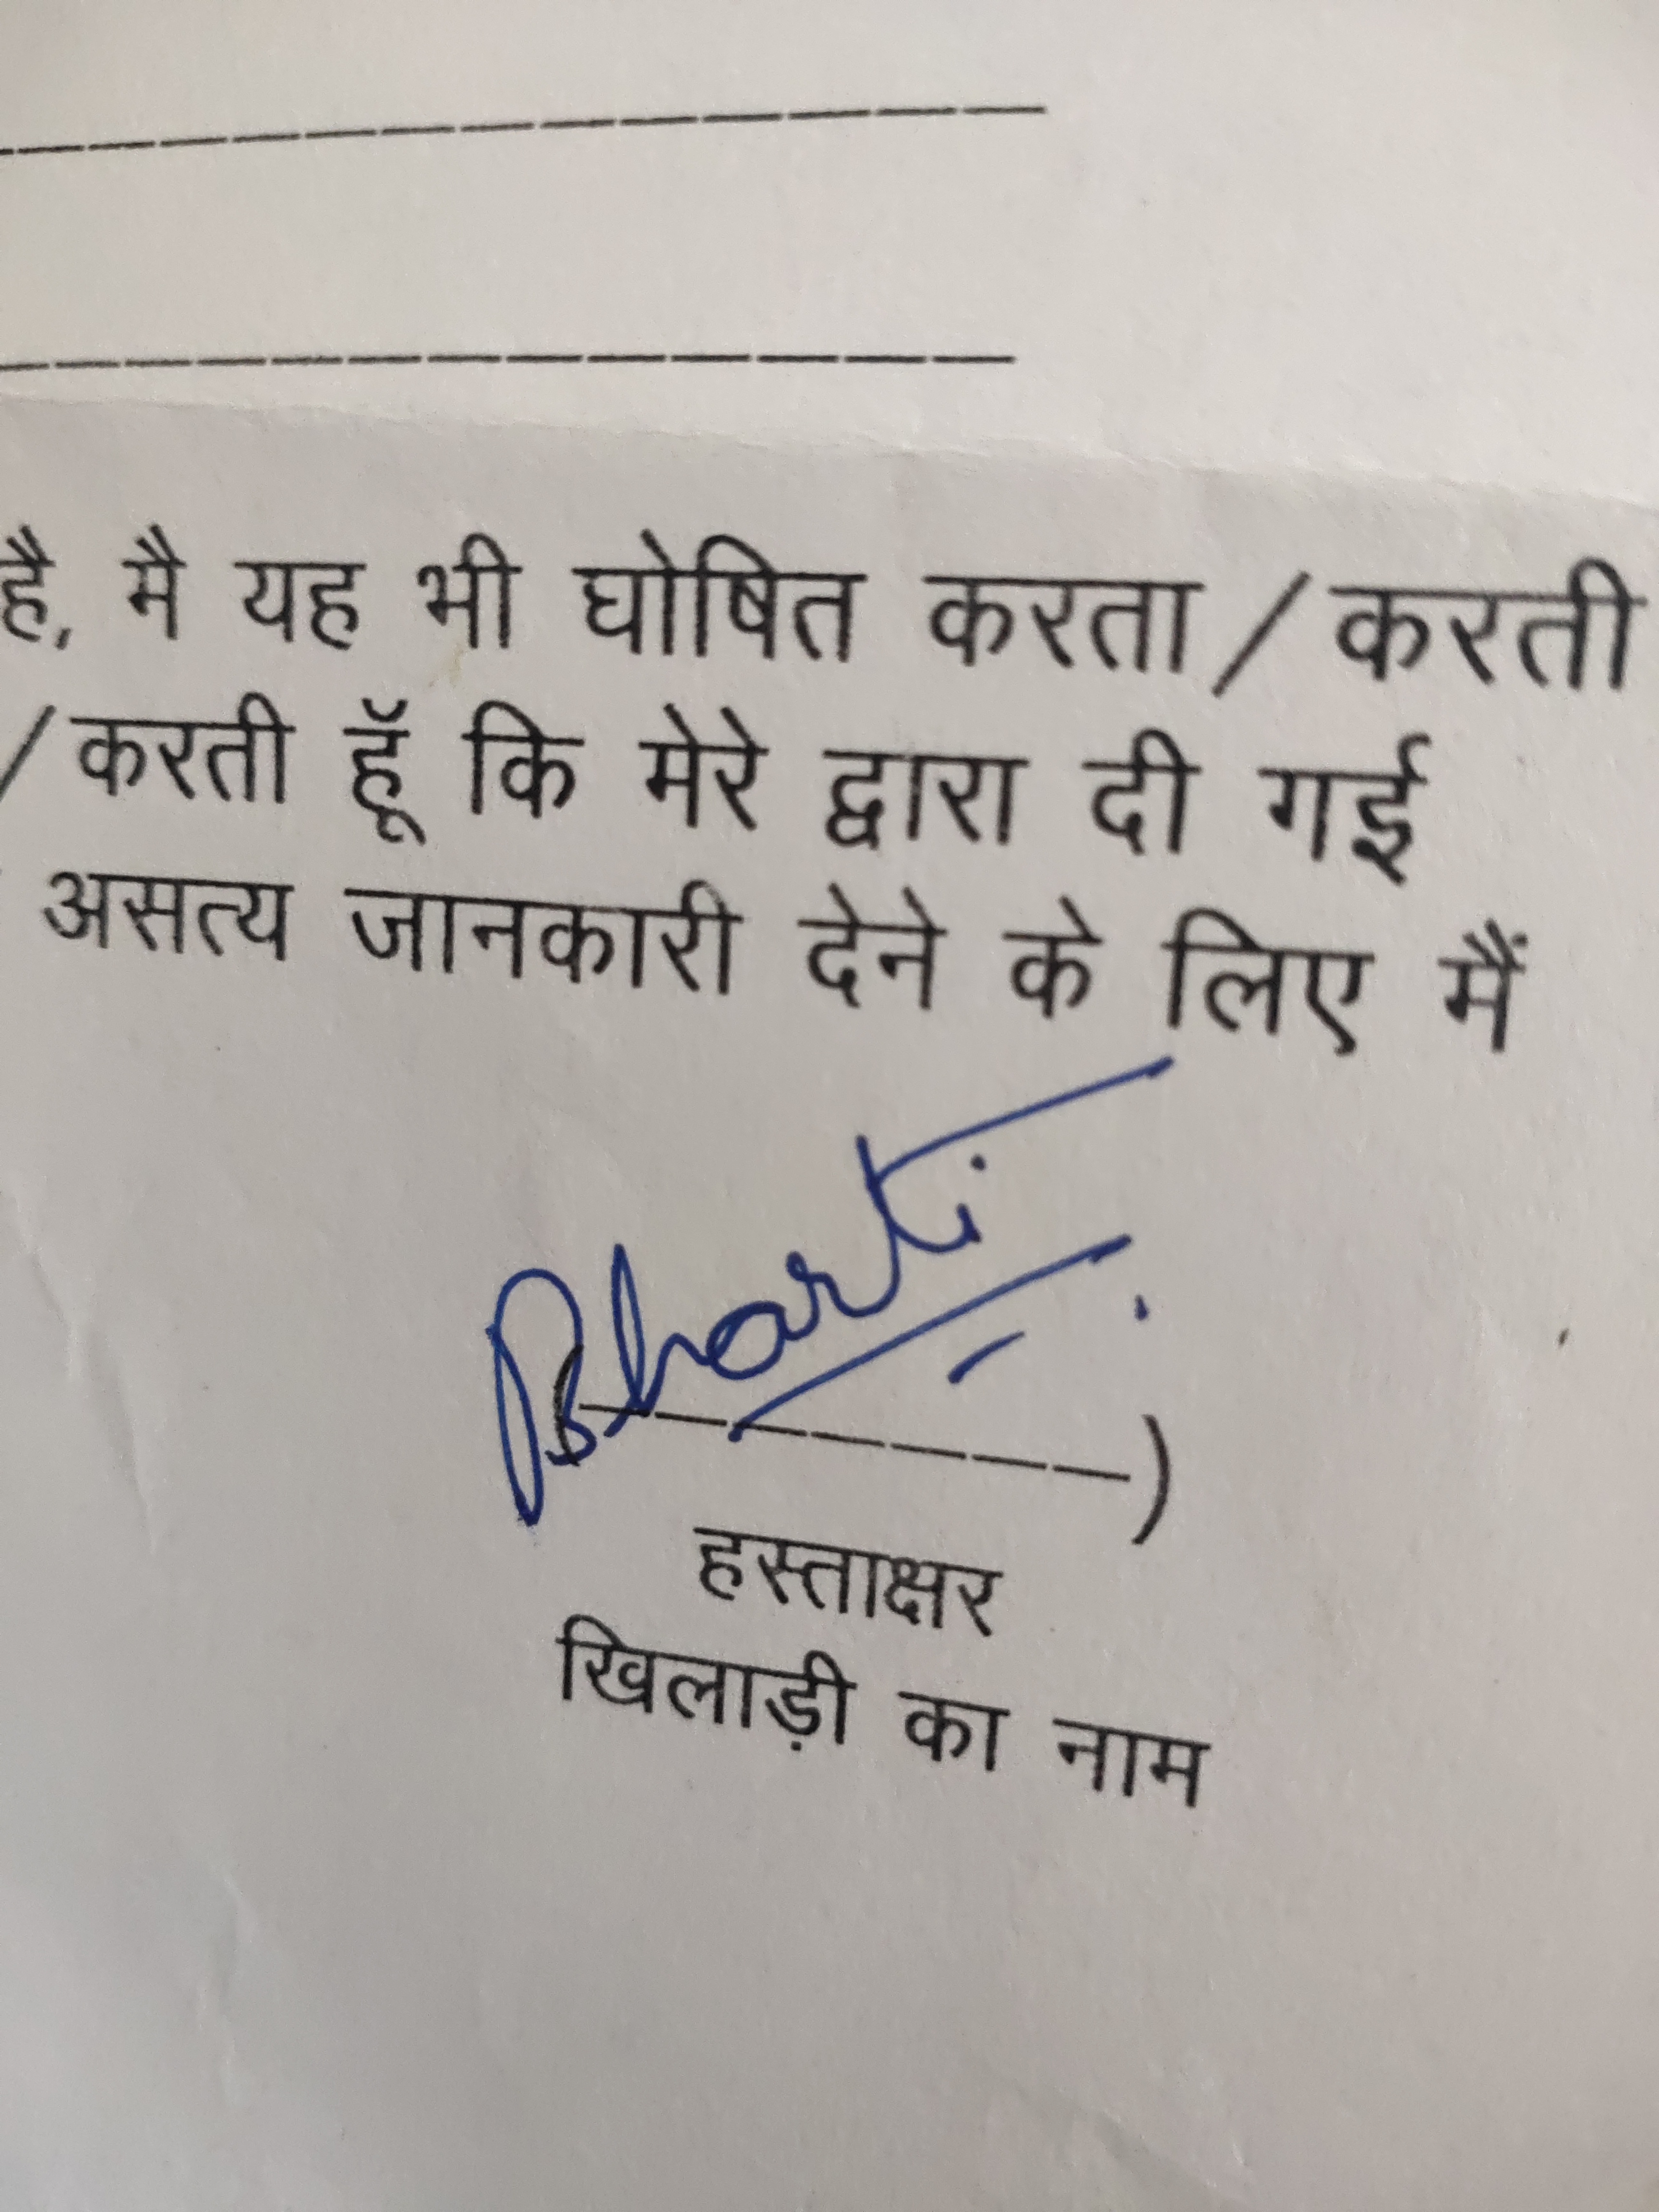 है, मै यह भी घोषित करता/करती
/करती हूॅ कि मेरे द्वारा दी गई
असत्य जानकारी देने के लिए मैं
Bharti
--------)
हस्ताक्षर
खिलाड़ी का नाम